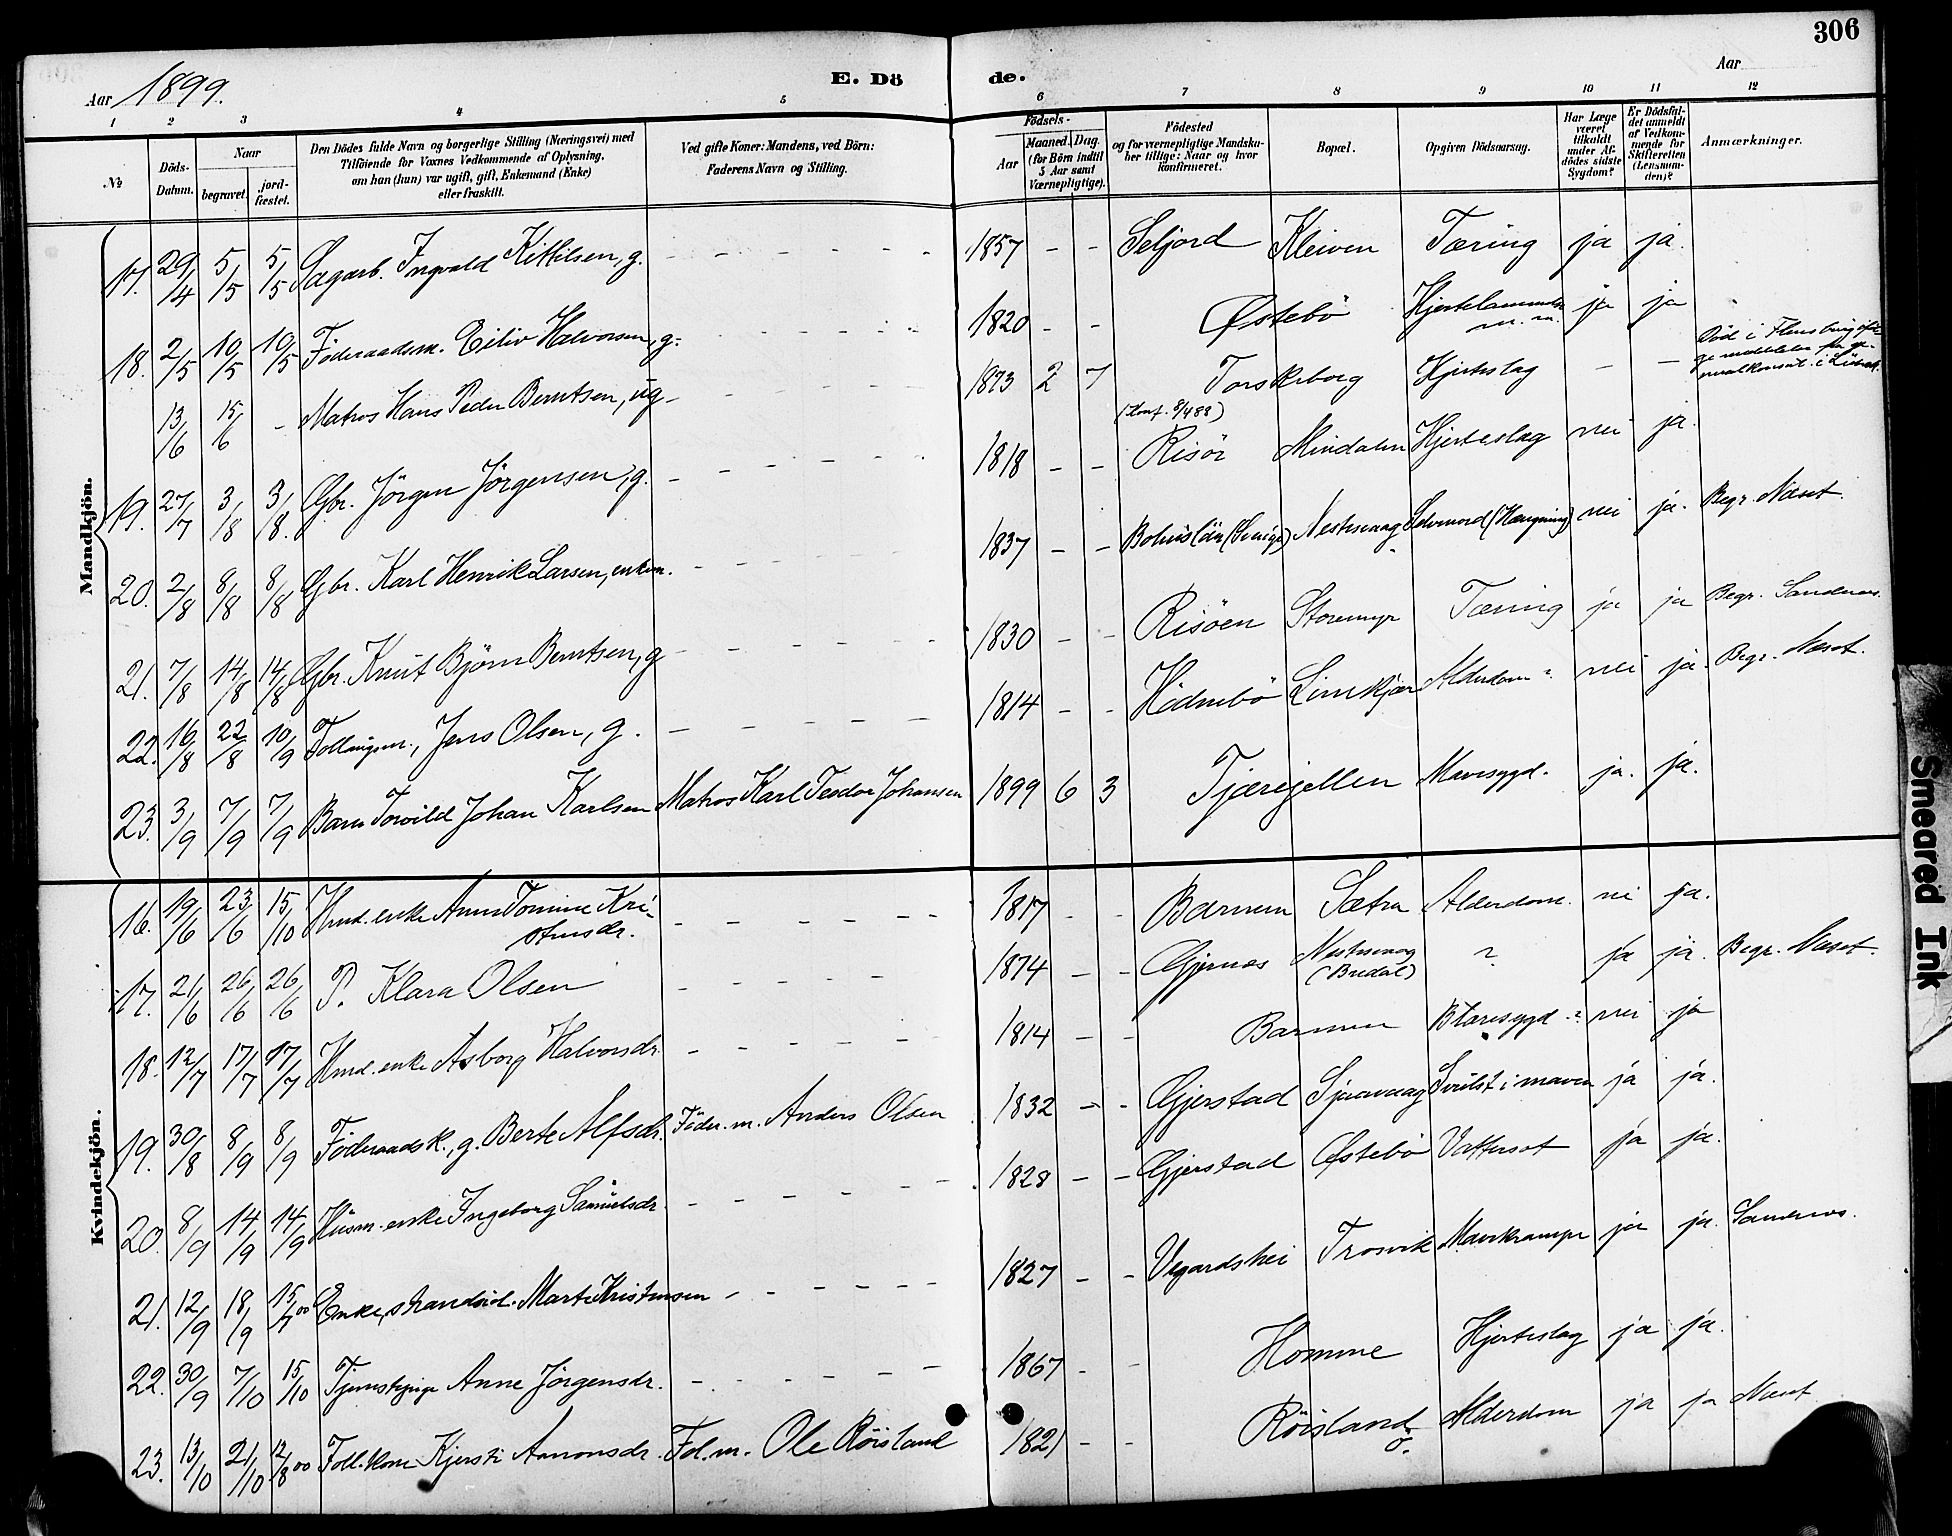 306
Aar 1899.
E. Dö de.
Aar
1 2 3 4 5 6 7 8 9 10 11 12
№
Döds-Datum.
Naar
begravet.
jord-fæstet.
Den Dödes fulde Navn og borgerlige Stilling (Næringsvei) med
Tilföiende for Voxnes Vedkommende af Oplysning,
om han (hun) var ugift, gift, Enkemand (Enke)
eller fraskilt.
Ved gifte Koner: Mandens, ved Börn:
Faderens Navn og Stilling.
Födsels-
Aar
Maaned. Dag.
(for Börn indtil
5 Aar samt
Værnepligtige).
Födested
og for værnepligtige Mandska-
ber tillige: Naar og hvor
konfirmeret.
Bopæl.
Opgiven Dödsaarsag.
Har Læge
været
tilkaldt
under Af-
dödes sidste
Sygdom?
Er Dödsfal-
det anmeldt
af Vedkom-
mende for
Skifteretten
(Lensman-
den)?
Anmærkninger.
Mandkjön.
17. 29/4 5/5 5/5 Sagarb. Ingvald Kittilsen, g. - - 1857 - - Seljord Kleiven Tæring ja ja.
18. 2/5 10/5 10/5 Föderaadsm. Eiliv Halvorsen, g. - - 1820 - - Østebö Hjertelammelse m. m. ja ja
13/6 15/6 - Matros Hans Peder Berntsen, ug. - - 1873 2 7 Torskeborg Hjerteslag - - Död i Flensburg
(Konf. 8/4 88)
19. 27/7 3/8 3/8. Gbr. Jörgen Jörgensen, g. - - 1818 - - Risör Mindalen Hjerteslag nei ja.
20. 2/8 8/8 8/8 Gbr. Karl Henrik Larsen, enkem. - - 1837 - - Bohuslän (Sverige) Nestesvaag Selvmord (Hængning) nei ja. Begr. Næset.
21. 7/8 14/8 14/8 Gbr. Knut Björn Berntsen, g - - 1830 - - Risöen Storemyr Tæring ja ja Begr. Sandnæs.
22. 16/8 22/8 10/9 Jens Olsen, g. - - 1814 - - Hödnebö Limkjær Alderdom? nei ja. Begr. Næset.
23. 3/9 7/9 7/9 Barn Torvild Johan Karlsen Matros Karl Teodor Johansen 1899 6 3 Tjærefjellen Mavesygd. ja. ja.
Kvindekjön.
16. 19/6 23/6 15/10 Hmd. enke Anne Tomine Kri-
stensdr. - - 1817 - - Barmen Sætra Alderdom. nei ja.
17. 21/6 26/6 26/6 P. Klara Olsen - - 1874 - - Gjernes Nestesvaag
(Bredal) ? ja ja. Begr. Næset.
18. 12/7 17/7 17/7 Hmd. enke Asborg Halvorsdr. - - 1814 - - Barmen Blæresygd.? nei ja
19. 30/8 8/9 8/9 Föderaadsk., g. Berte Alfsdr. Föder. m. Anders Olsen 1832 - - Gjerstad Sjaavaag Svulst i maven ja ja.
20. 8/9 14/9 14/9 Husm. enke Ingeborg Samuelsdr. - - 1828 - - Gjerstad Østebö Vattersot ja ja.
21. 12/9 18/9 15/7 00 Enke, strands. Marte Kristensen - - 1827 - - Vegardshei Trosvik Mavekrampe ja ja. Sandnæs.
22. 30/9 7/10 15/10 Tjenestepige Anne Jörgensdr. - - 1867 - - Homme Hjerteslag ja ja.
23. 13/10 21/10 12/8 00 Foll.kone Kjersti Aanonsdr. Fol.m. Ole Röisland 1821 - - Röisland ö. Alderdom ja ja Næset
Smeared Ink